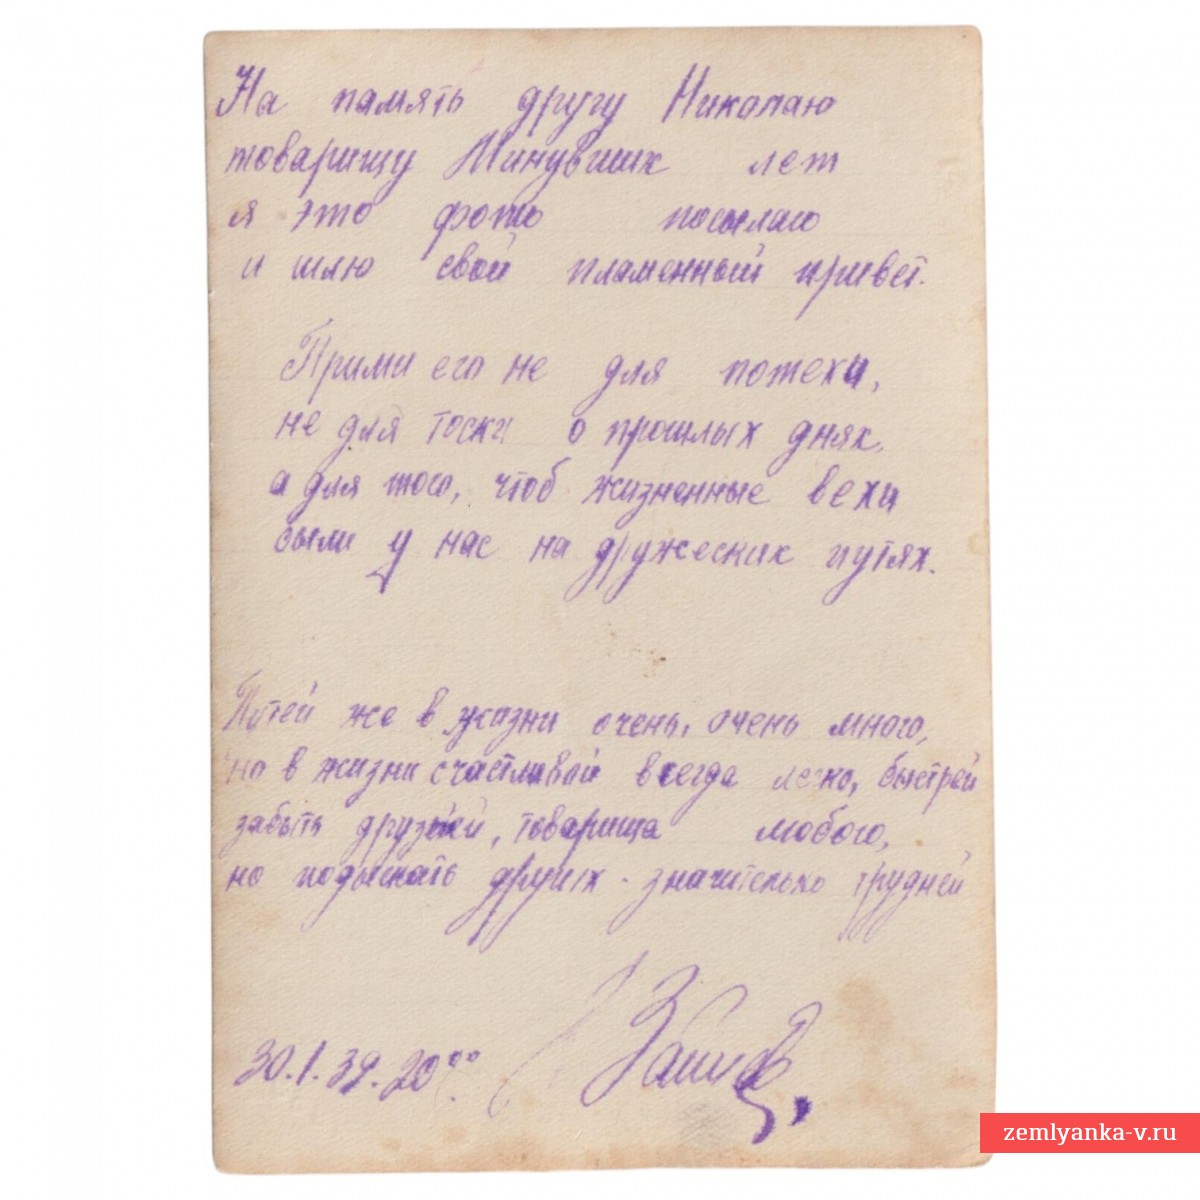 На память другу Николаю
товарищу Минувших лет
я это фото посылаю
и шлю свой пламенный привет.
Прими его не для потехи,
не для тоски о прошлых днях,
а для того, чтоб жизненные вехи
были у нас на дружеских путях.
Путей же в жизни очень, очень много,
но в жизни счастливой всегда легко, быстрей
забыть друзей, товарища любого,
но подыскать других - значительно трудней
30.1.39. 20°°
zemlyanka-v.ru